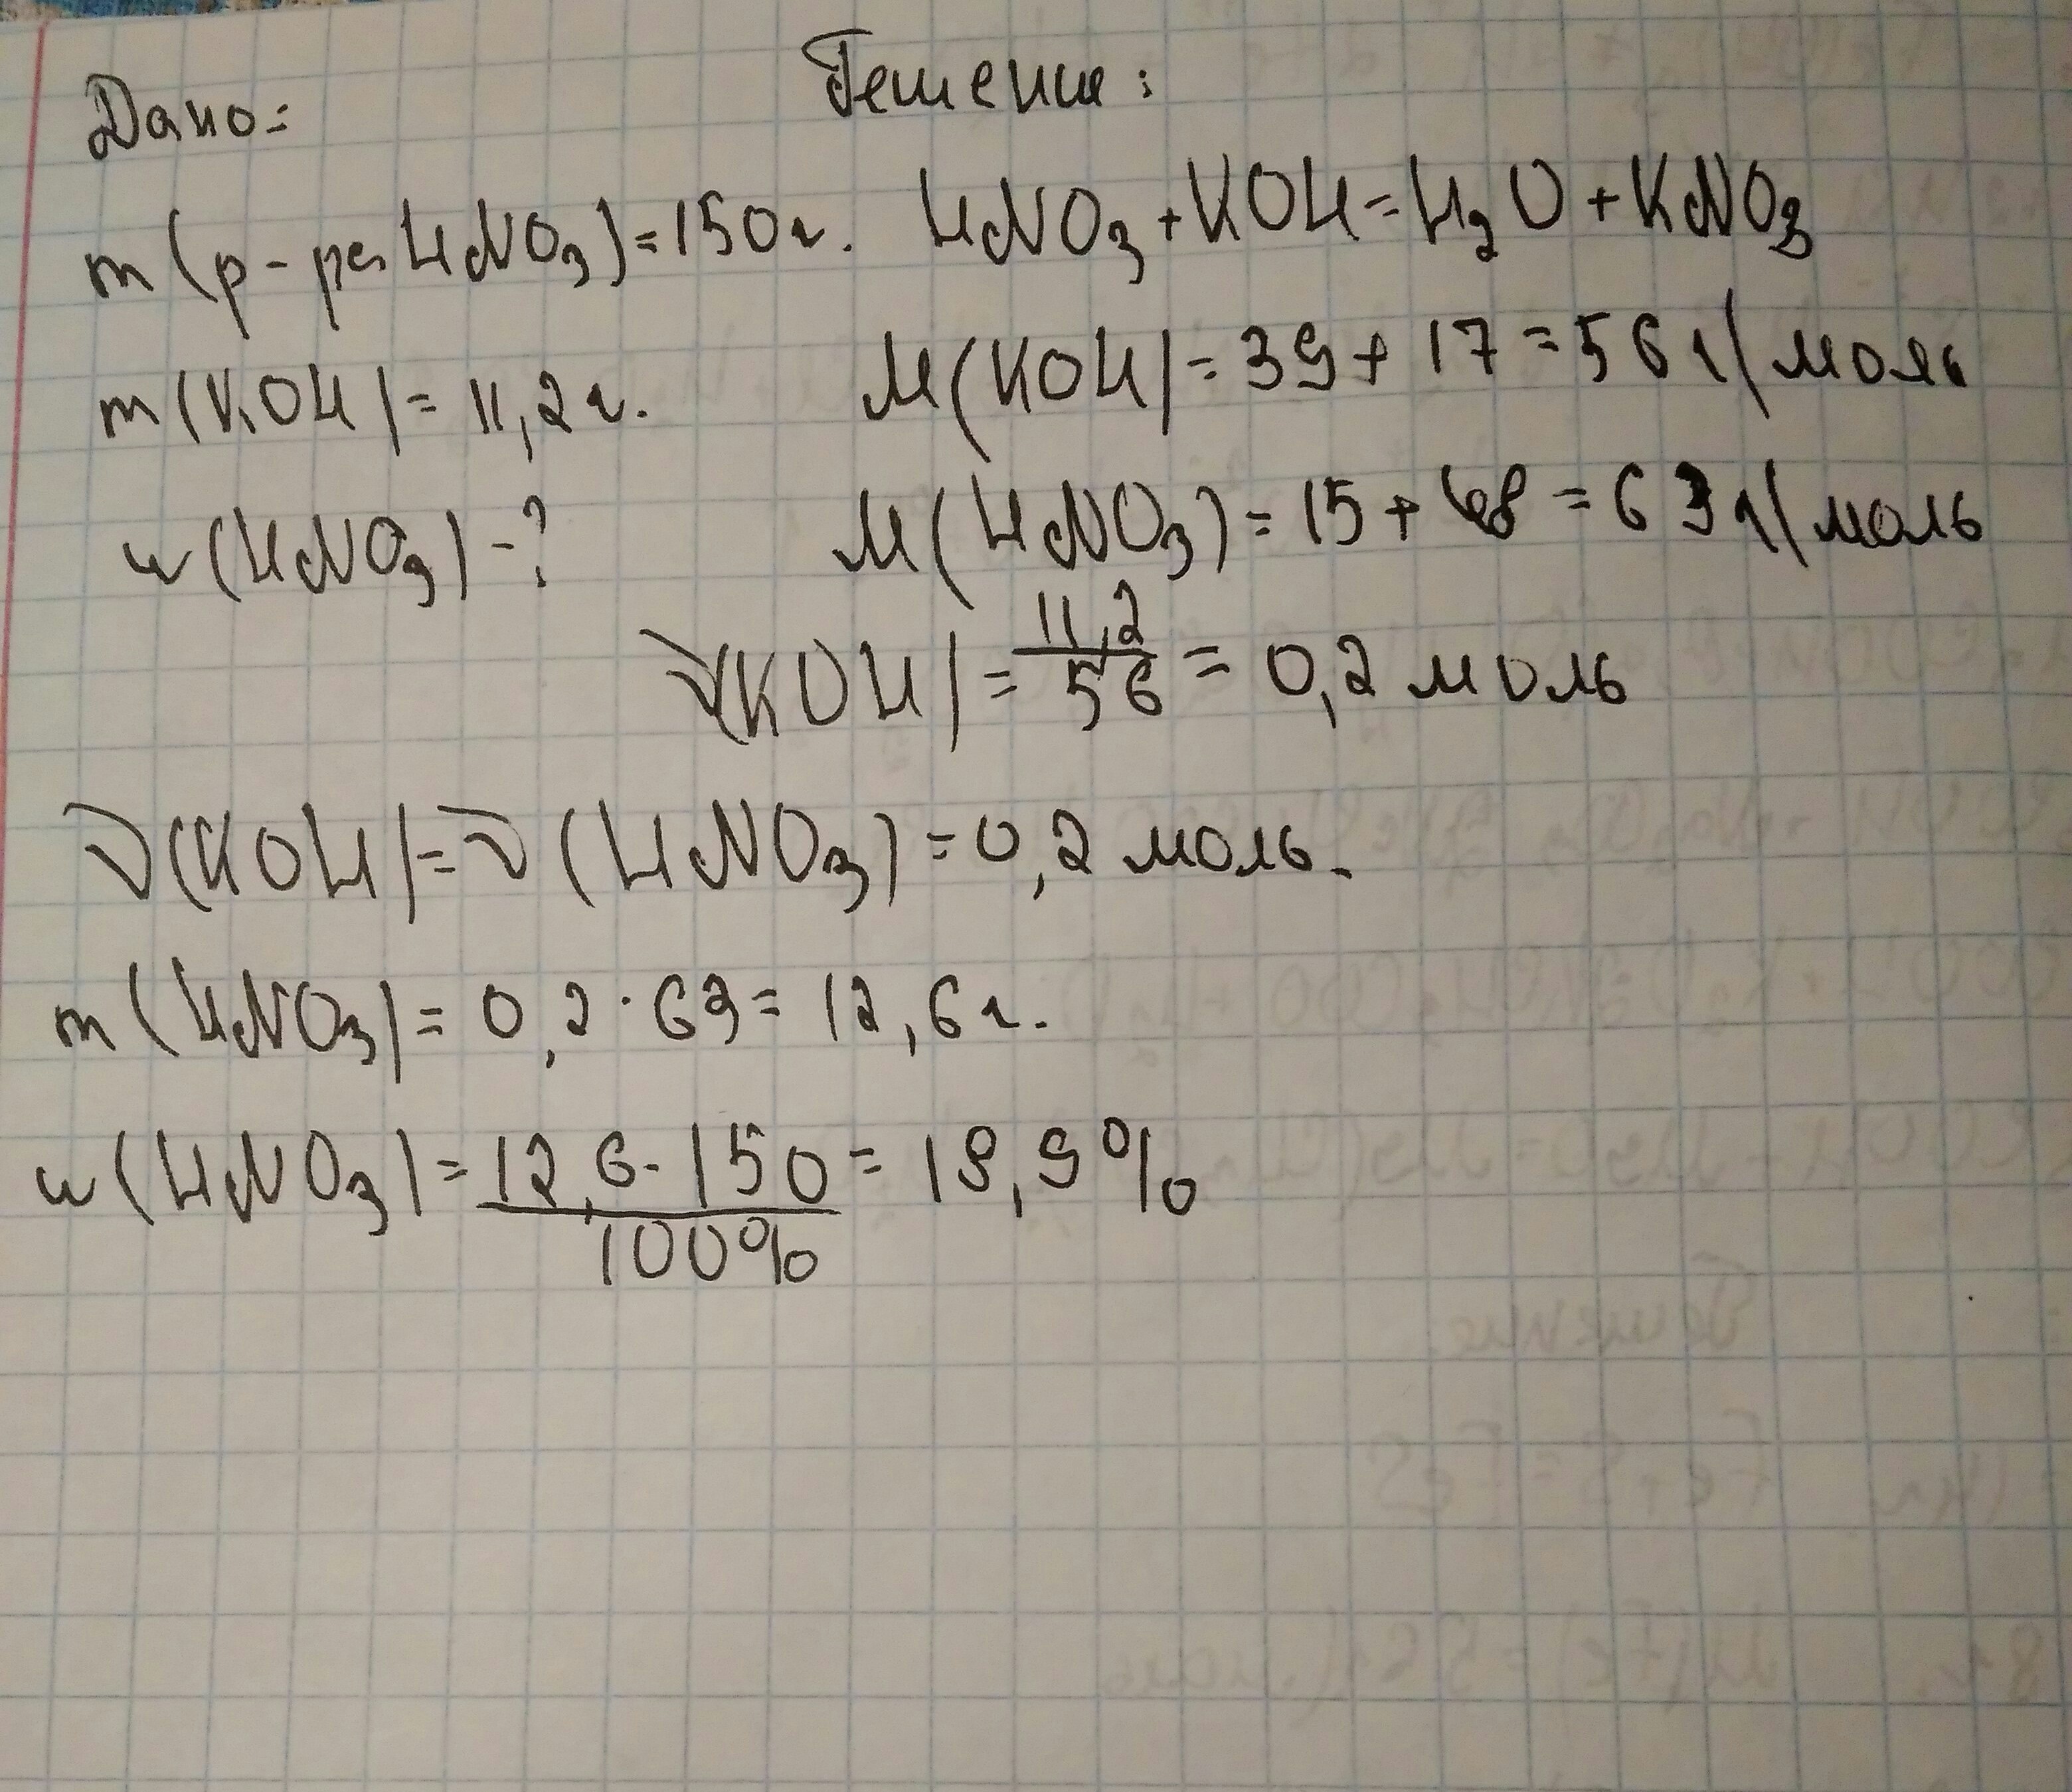 Дано:
Решение:
m(р-ра HNO3)=150г.
HNO3+KOH=H2O+KNO3
m(KOH)=11,2г.
M(KOH)=39+17=56г/моль
w(HNO3)-?
M(HNO3)=15+48=63г/моль
ν(KOH)=11,2/56=0,2 моль
ν(KOH)=ν(HNO3)=0,2 моль.
m(HNO3)=0,2·63=12,6г.
w(HNO3)=12,6·150/100%=18,9%